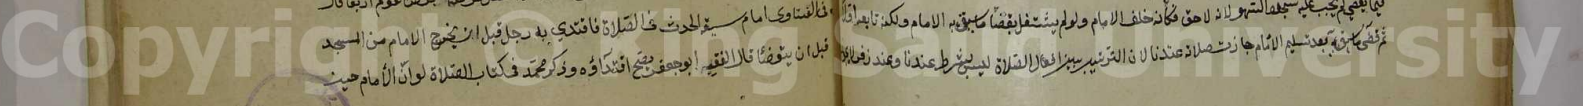 فيما يقضي لم يجب عليه سجود السهو لانه لاحق فكأنه خلف الامام ولو لم يشتغل بقضا ما سبق به الامام ولكنه تابعه
ثم قضى ما سبق به بعد تسليم الامام جازت صلاته عندنا لان الترتيب بين افعال الصلاة ليس بشرط عندنا وعند زفر
في الفتاوى امام سبقه الحدث في الصلاة فاقتدى به رجل قبل ان يخرج الامام من المسجد
قبل ان يتوضأ قال الفقيه ابو جعفر يصح اقتداؤه وذكر محمد في كتاب الصلاة لو ان الامام حين
Copyright © King University